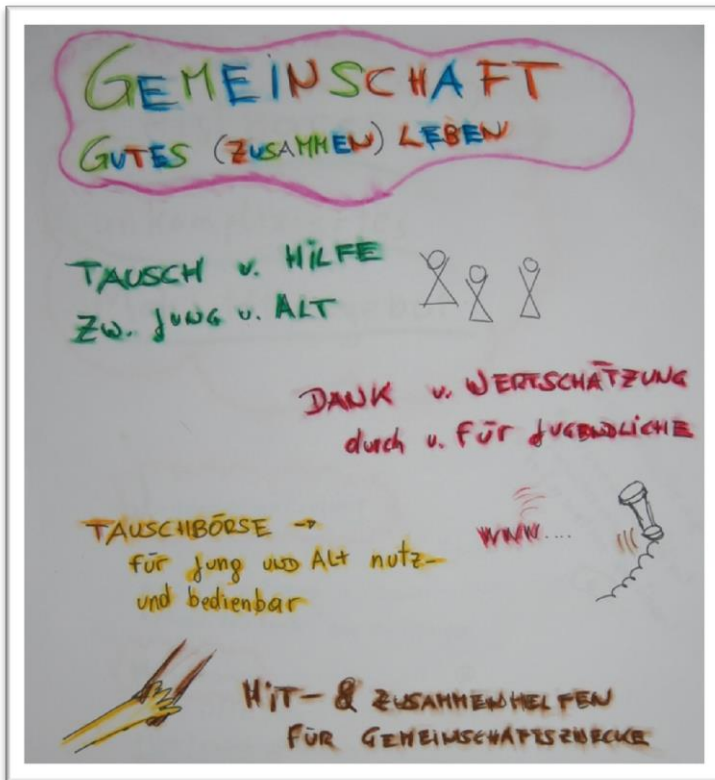 GEMEINSCHAFT
GUTES (ZUSAMMEN) LEBEN
TAUSCH u. HILFE
ZW. JUNG u. ALT
DANK u. WERTSCHÄTZUNG
durch u. FÜR JUGENDLICHE
TAUSCHBÖRSE →
für Jung UND Alt nutz-
und bedienbar
WWW....
MIT- & ZUSAMMENHELFEN
FÜR GEMEINSCHAFTSZWECKE